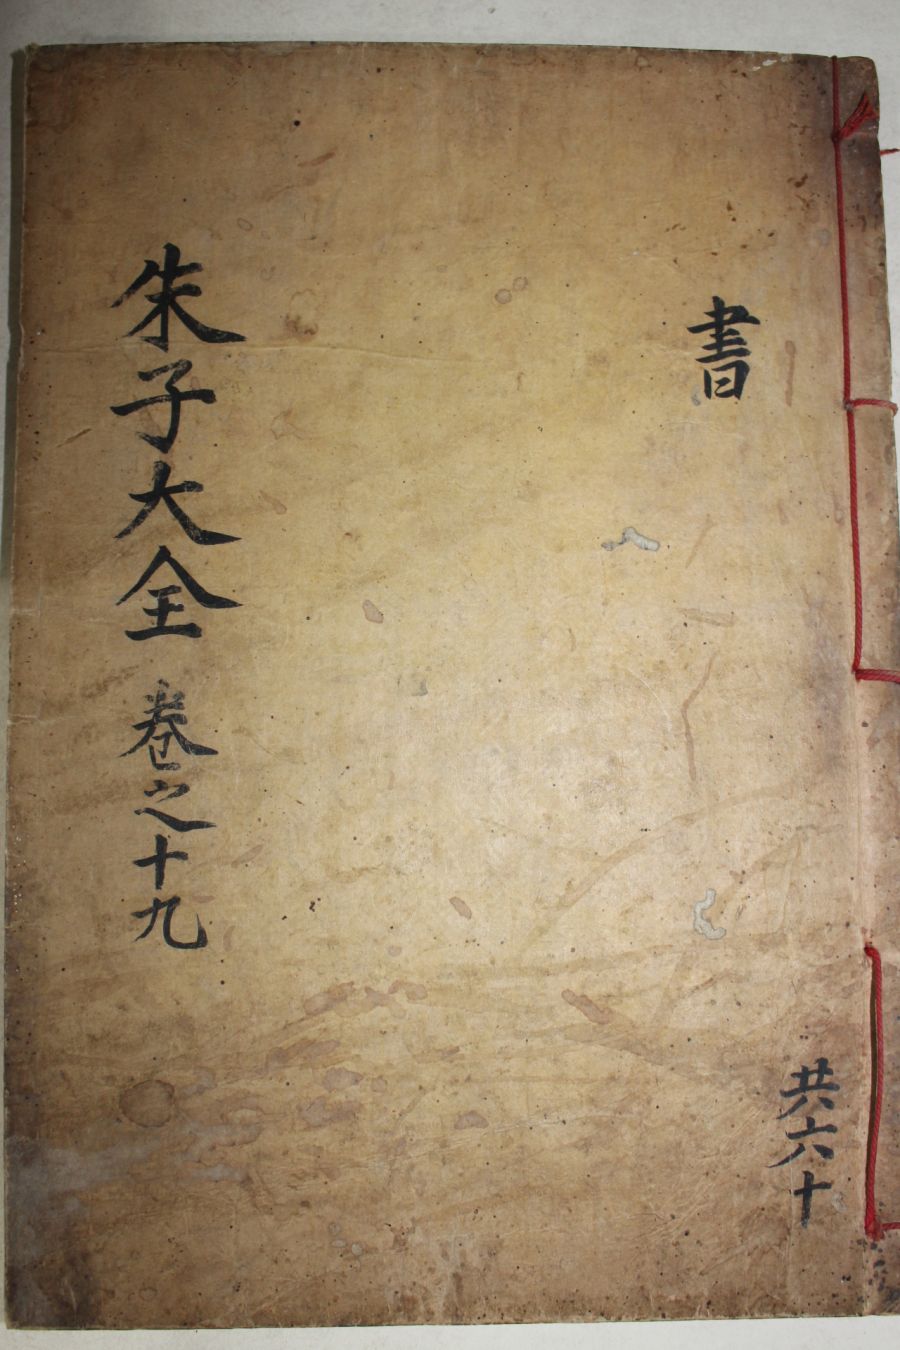 朱子大全 卷之十九
書
共六十